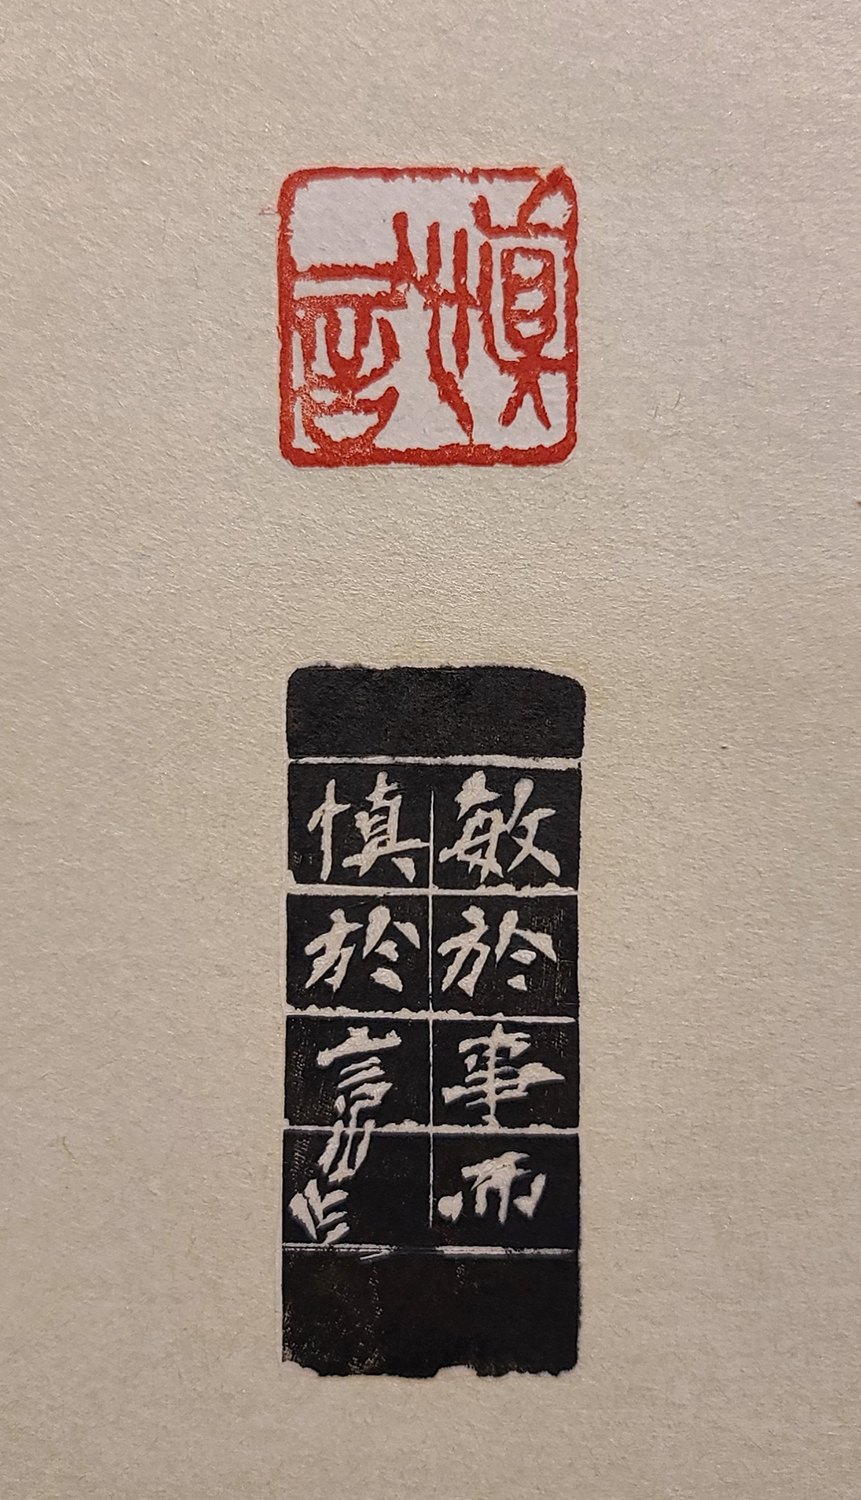 慎言
敏於事而
慎於言
作